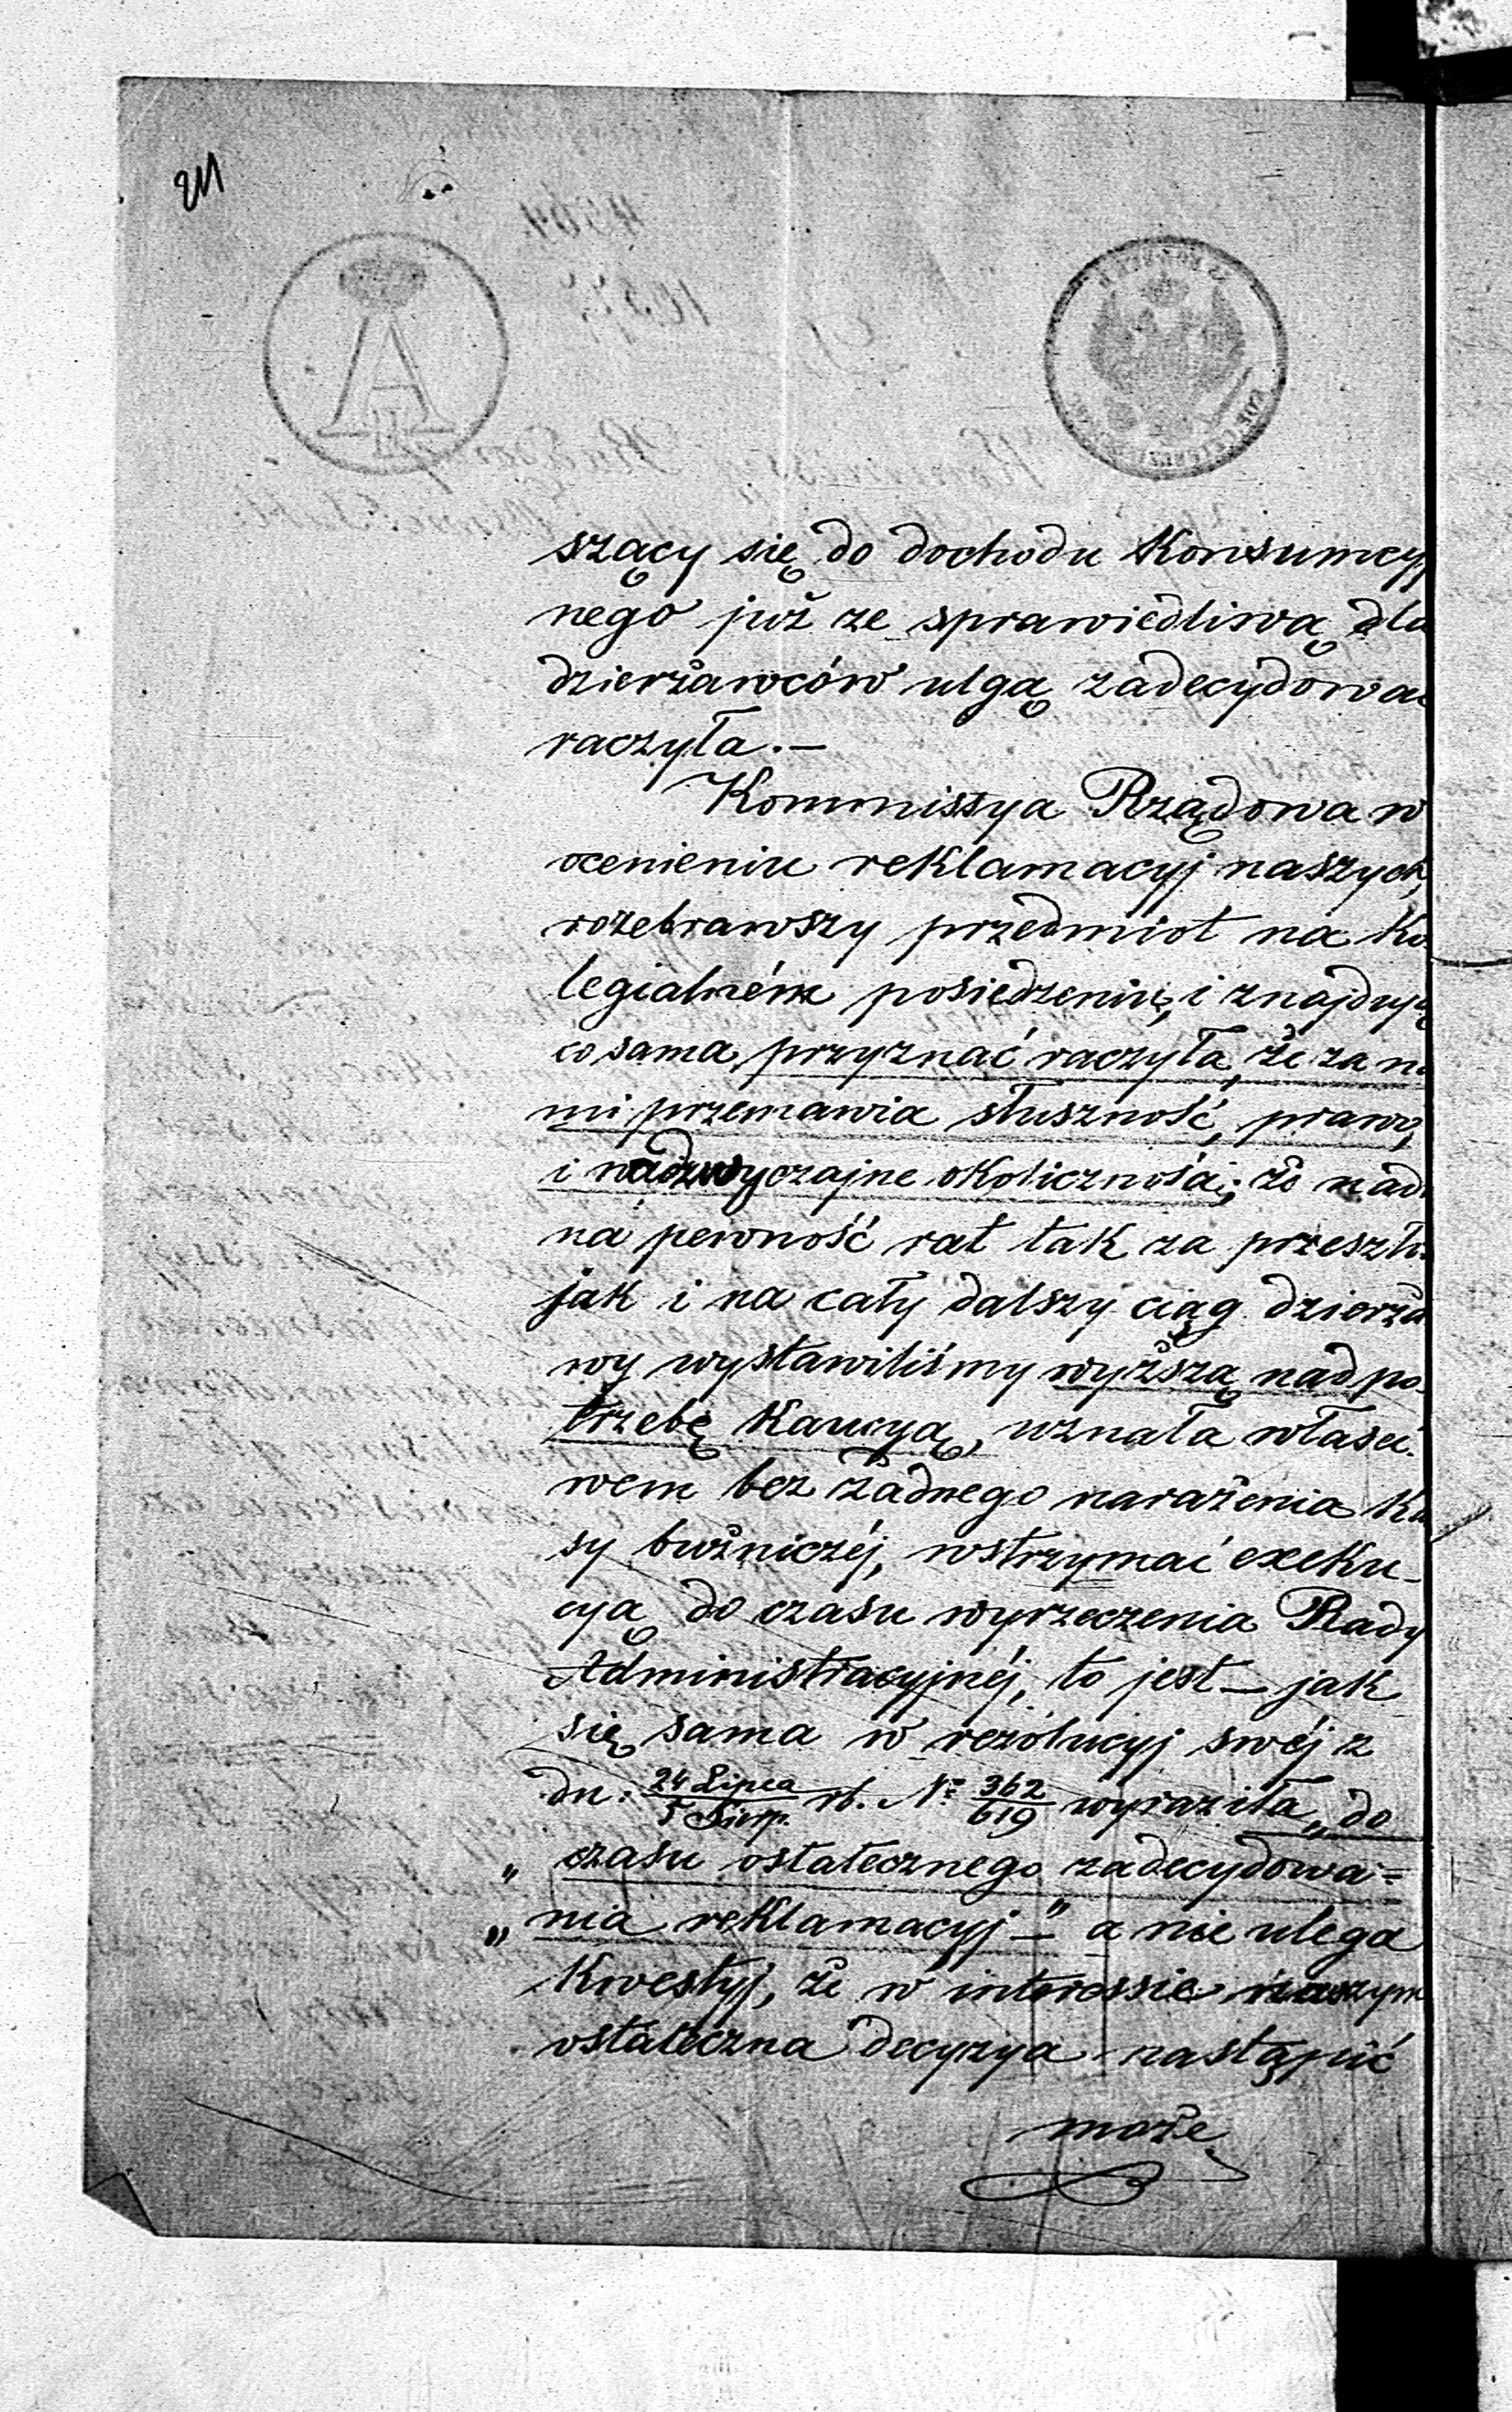 211
A
II
szący się do dochodu Konsumcyj
nego już ze sprawiedliwą dla
dzierżawców ulgą zadecydowa
raczyła. —
Kommissya Rządowa w
ocenieniu reklamacyj naszych,
rozebrawszy przedmiot na Ko
legialném posiedzeniu, i znajdują
co sama przyznać raczyła, że za na
mi przemawia słuszność, prawo,
i nadzwyczajne okoliczności; że nad
na pewność rat tak za przeszło
jak i na cały dalszy ciąg dzierża
wy wystawiliśmy wyższą nad po-
trzebę Kaucyą, uznała właści-
wem bez żadnego narażenia Ka
sy bużniczéj, wstrzymać exeku-
cyą do czasu wyrzeczenia Rady
Administracyjnéj, to jest — jak
się sama w rezolucyj swéj z
dn: 24 Lipca / 5 Sierp. rb. № 362 / 619 wyraziła „do
„ czasu ostatecznego zadecydowa=
„ nia reklamacyj —" a nie ulega
Kwestyj, że w interessie naszym
ostateczna decyzya nastąpić
może